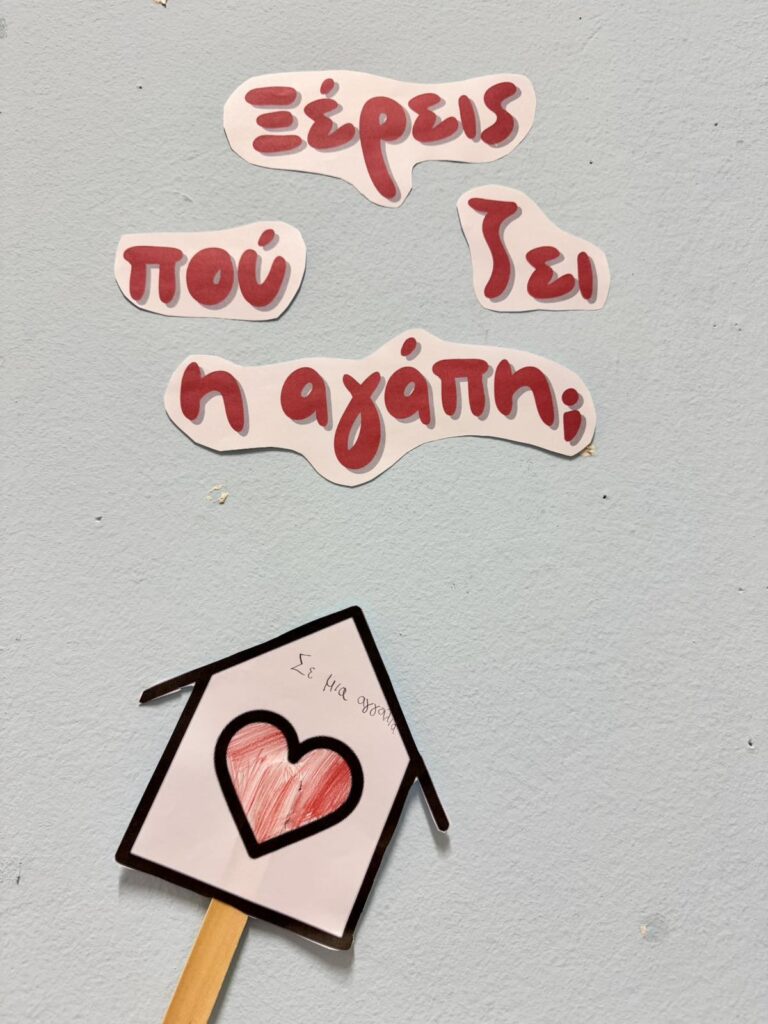 Ξέρεις
πού ζει
η αγάπη;
Σε μια αγκαλιά